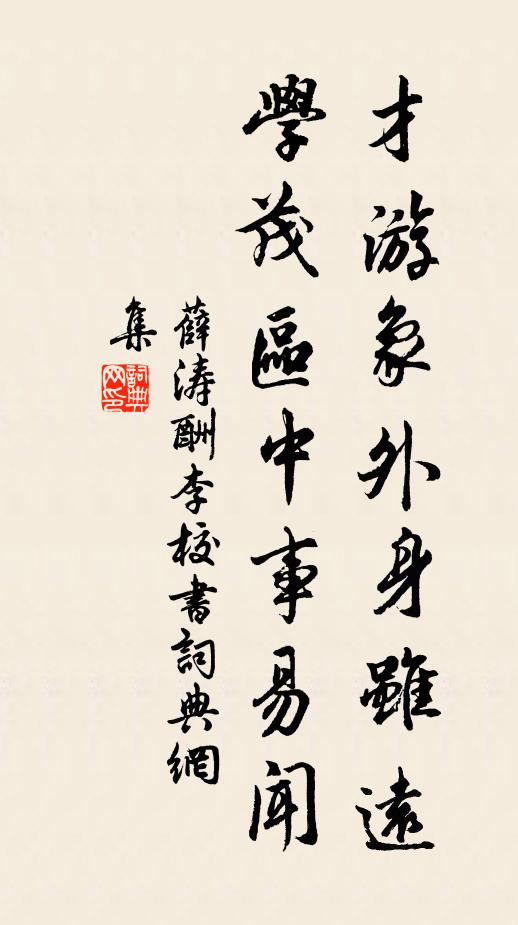 才游象外身雖遠
學茂區中事易聞
薛濤酬李校書詞典網
集
詞典网印